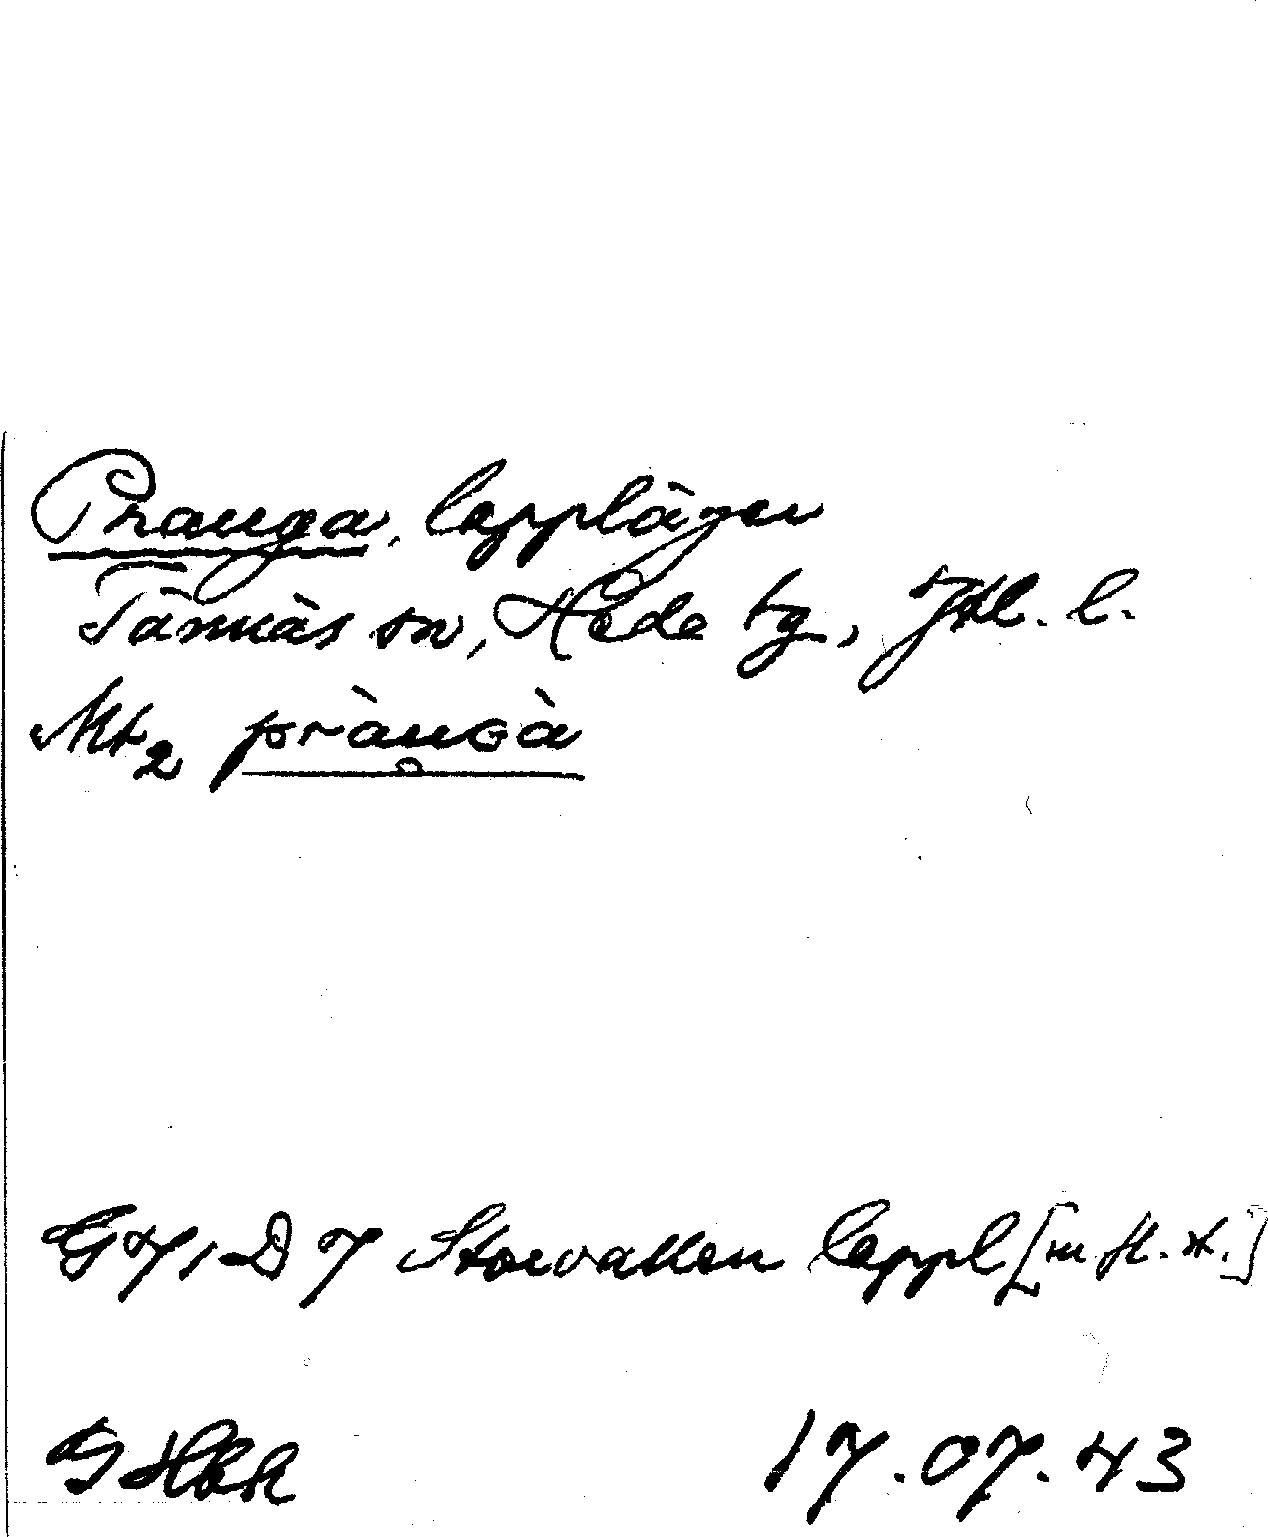 Pranga, lappläger
Tännäs sn, Hede tg, Jtl. l.
Mt2 pràngà
G 7, D 7 Storvallen lappl [m fl. st.]
17.07.43